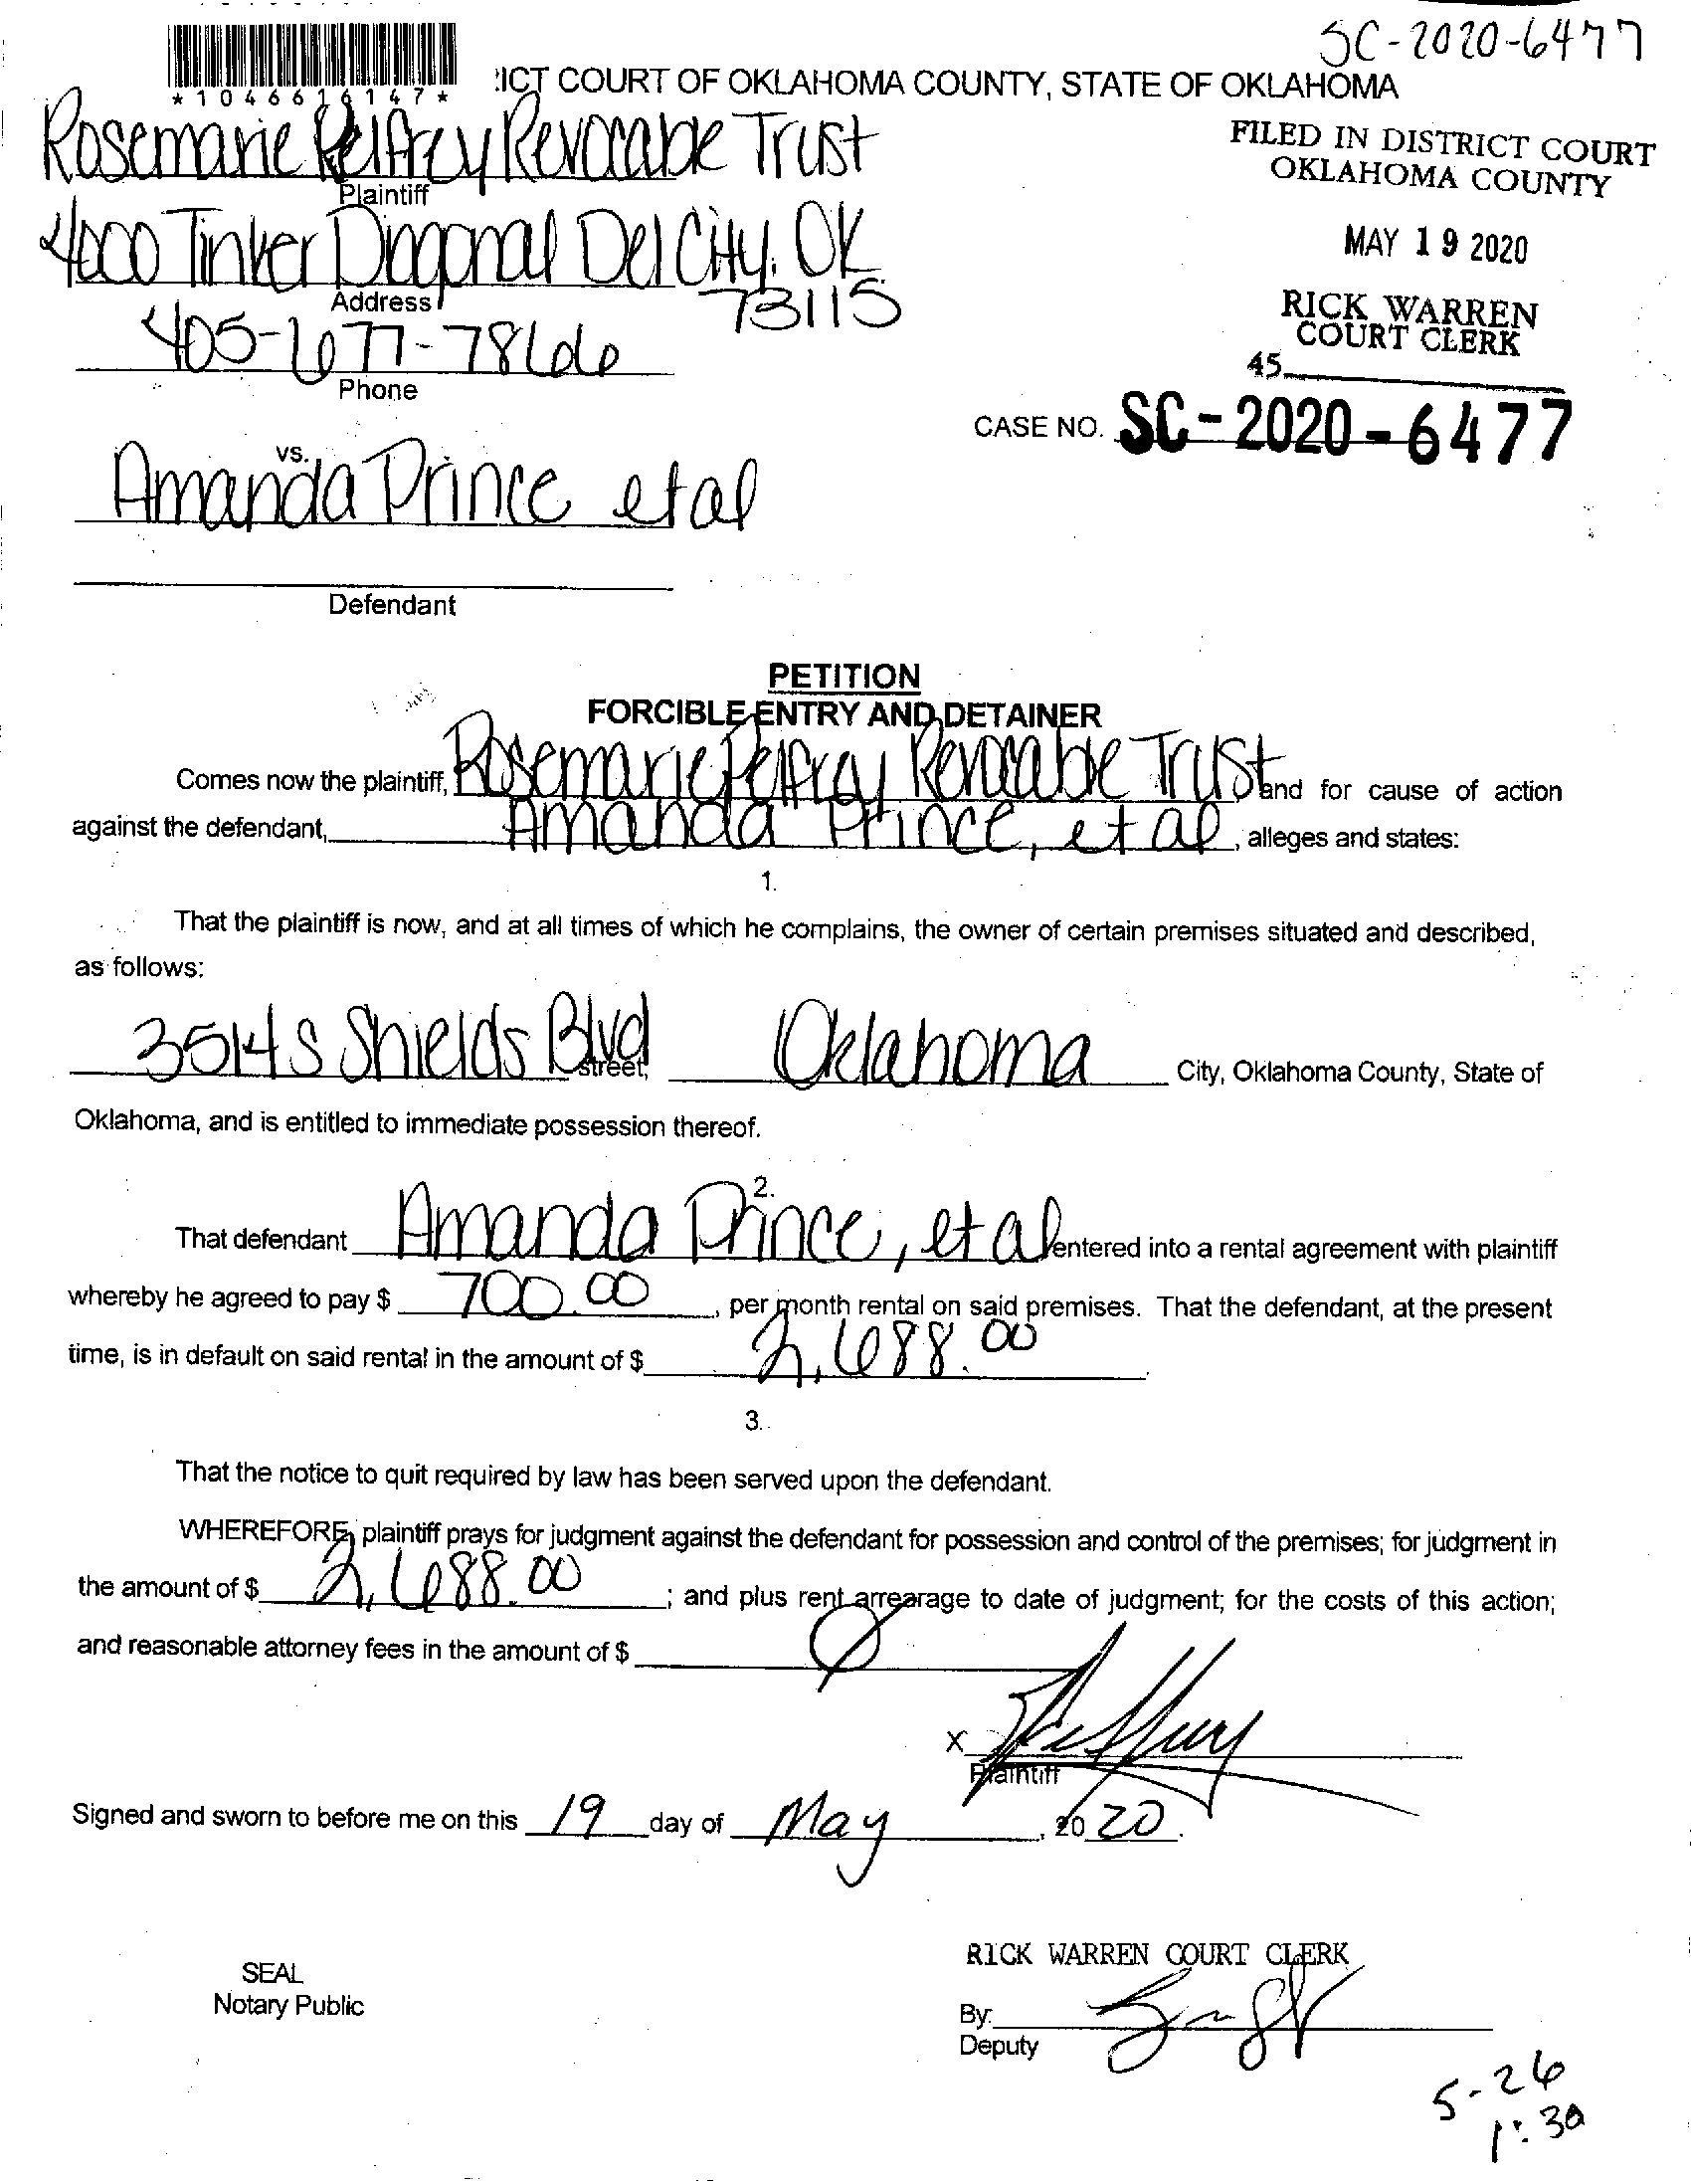 SC-2020-6477
*1046616147*
ICT COURT OF OKLAHOMA COUNTY, STATE OF OKLAHOMA
Rosemarie Pelfrey Revocable Trust
Plaintiff
FILED IN DISTRICT COURT
OKLAHOMA COUNTY
4000 Tinker Diagonal Del City, OK
73115
Address
MAY 19 2020
405-677-7866
Phone
RICK WARREN
COURT CLERK
45
CASE NO. SC-2020-6477
vs.
Amanda Prince et al
Defendant
PETITION
FORCIBLE ENTRY AND DETAINER
Comes now the plaintiff, Rosemarie Pelfrey Revocable Trust and for cause of action
against the defendant, Amanda Prince, et al, alleges and states:
1.
That the plaintiff is now, and at all times of which he complains, the owner of certain premises situated and described,
as follows:
3514 S Shields Blvd street, Oklahoma City, Oklahoma County, State of
Oklahoma, and is entitled to immediate possession thereof.
2.
That defendant Amanda Prince, et al entered into a rental agreement with plaintiff
whereby he agreed to pay $ 700.00, per month rental on said premises. That the defendant, at the present
time, is in default on said rental in the amount of $ 2,688.00.
3.
That the notice to quit required by law has been served upon the defendant.
WHEREFORE, plaintiff prays for judgment against the defendant for possession and control of the premises; for judgment in
the amount of $ 2,688.00; and plus rent arrearage to date of judgment; for the costs of this action;
and reasonable attorney fees in the amount of $ Ø
X Pelfrey
Plaintiff
Signed and sworn to before me on this 19 day of May, 2020.
SEAL
Notary Public
RICK WARREN COURT CLERK
By:
Deputy
5-26
1:30